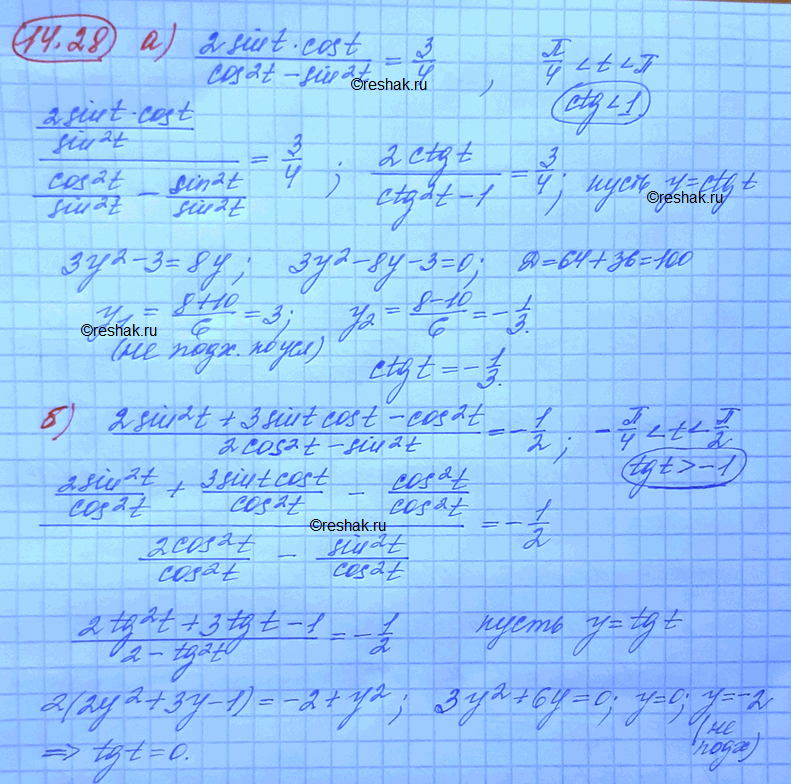 14.28 а) (2 sin t · cos t)/(cos²t − sin²t) = 3/4 , π/4 < t < π
ctg < 1
©reshak.ru
(2 sin t · cos t / sin²t)/(cos²t/sin²t − sin²t/sin²t) = 3/4 ; (2 ctg t)/(ctg²t − 1) = 3/4 ; пусть y = ctg t
©reshak.ru
3y² − 3 = 8y ; 3y² − 8y − 3 = 0 ; D = 64 + 36 = 100
y₁ = (8+10)/6 = 3 ; y₂ = (8−10)/6 = −1/3.
©reshak.ru
(не подх. по усл)
ctg t = −1/3.
б) (2 sin²t + 3 sin t cos t − cos²t)/(2cos²t − sin²t) = −1/2 ; −π/4 < t < π/2
tg t > −1
(2 sin²t/cos²t + 3 sin t cos t/cos²t − cos²t/cos²t)/(2cos²t/cos²t − sin²t/cos²t) = −1/2
©reshak.ru
(2 tg²t + 3 tg t − 1)/(2 − tg²t) = −1/2 пусть y = tg t
2(2y² + 3y − 1) = −2 + y² ; 3y² + 6y = 0 ; y = 0 ; y = −2
(не подх)
=> tg t = 0.